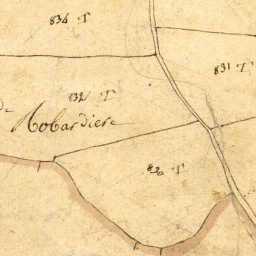 834 T
831 T
832 T
Robardiere
830 T